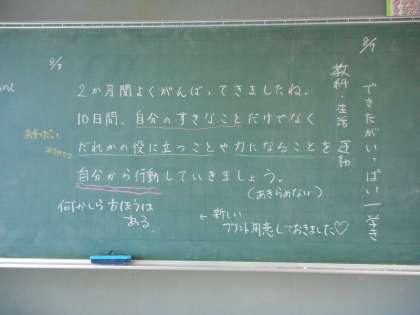 9/7
できたがいっぱい 一学き
教科・生活 運動
9/7
2か月間よくがんばってきましたね。
10日間、自分のすきなことだけでなく
だれかの役に立つことや力になることを
自分から行動していきましょう。
(あきらめない)
何かしら方ほうは
ある
← 新しい
プリント用意しておきました♡